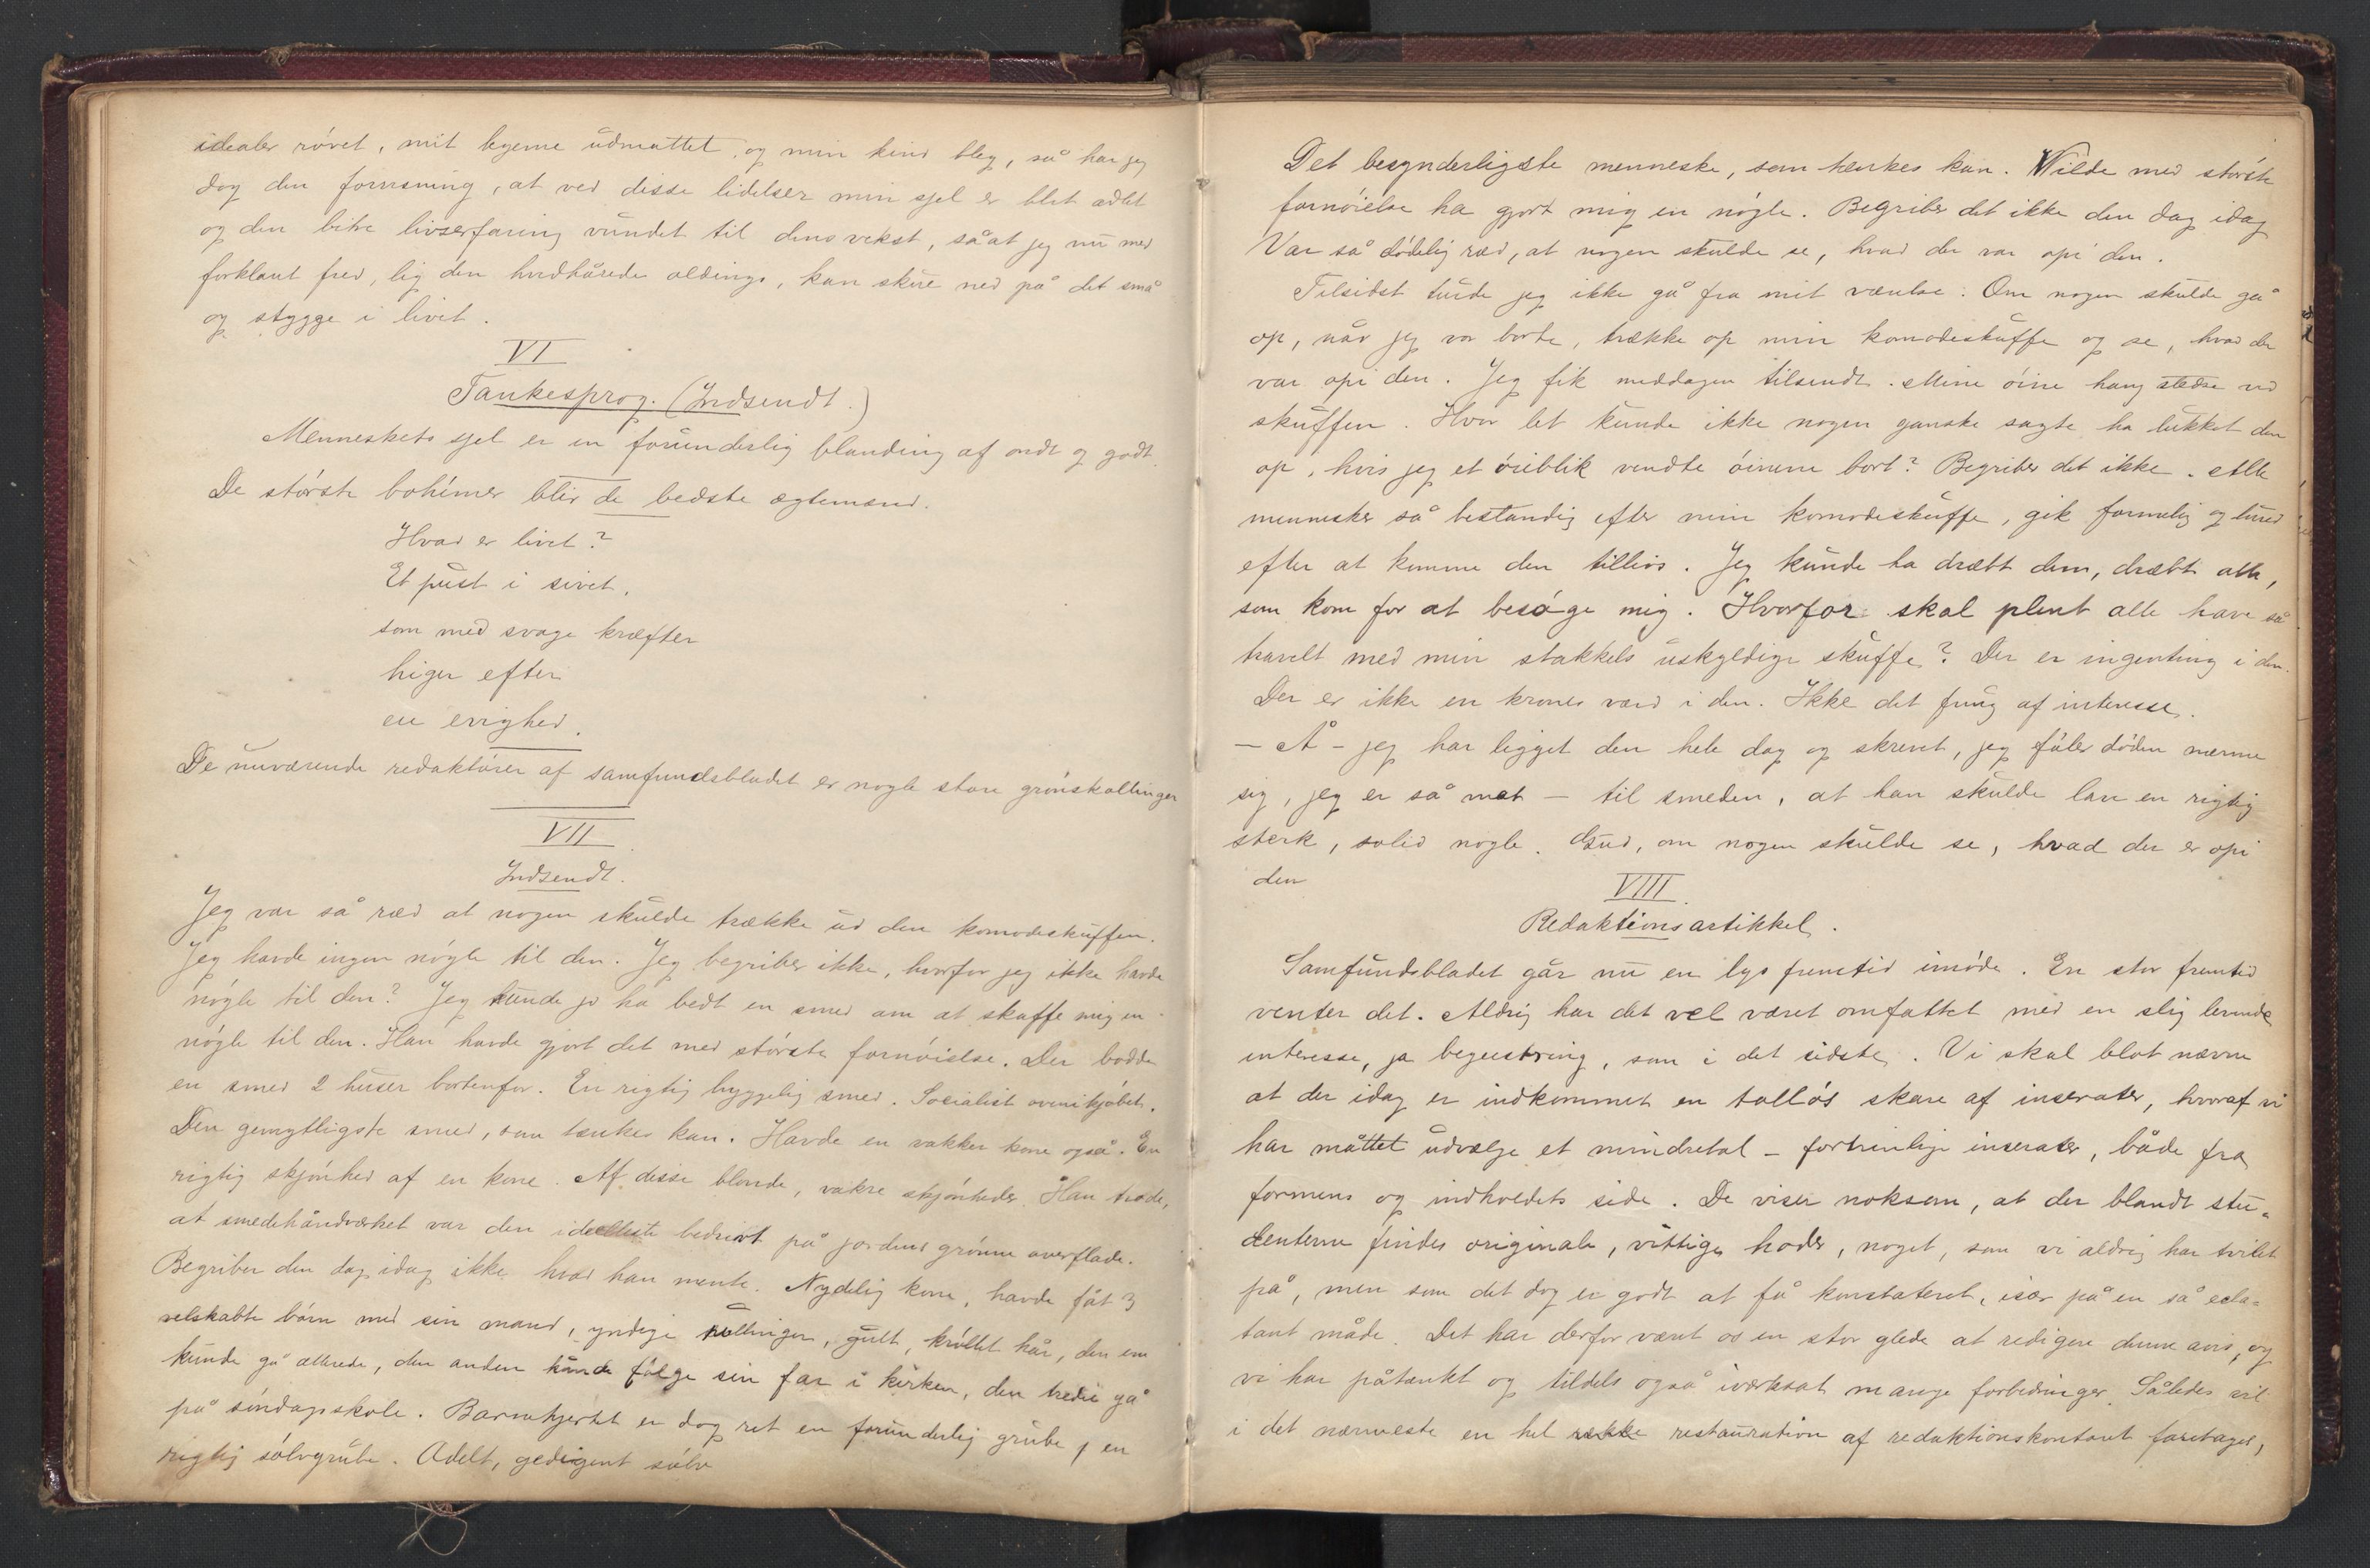 idealer røvet, mit legeme udmattet, og min kind bleg, så har jeg
dog den forvisning, at ved disse lidelser min sjel er blet adlet
og den bitre livserfaring vundet til dens vekst, såat jeg nu med
forklaret fred, lig den hvidhårede oldings, kan skue ned på det små
og stygge i livet.
VI
Tankesprog. (Indsendt.)
Menneskets sjel er en forunderlig blanding af ondt og godt.
De største bohêmer blir de bedste ægtemænd.
Hvad er livet?
Et pust i sivet,
som med svage kræfter
higer efter
en evighed.
De nuværende redaktører af samfundsbladet er nogle store grønskollinger
VII
Indsendt.
Jeg var så ræd at nogen skulde trække ud den komodeskuffen.
Jeg havde ingen nøgle til den. Jeg begriber ikke, hvorfor jeg ikke havde
nøgle til den? Jeg kunde jo ha bedt en smed om at skaffe mig en
nøgle til den. Han havde gjort det med største fornøielse. Der bodde
en smed 2 huser bortenfor. En rigtig hyggelig smed. Socialist ovenikjøbet.
Den gemytligste smed, som tænkes kan. Havde en vakker kone også. En
rigtig skjønhed af en kone. Af disse blonde, vakre skjønheder. Han trode,
at smedehåndværket var den ideelleste bedrivt på jordens grønne overflade.
Begriber den dag idag ikke hvad han mente. Nydelig kone, havde fåt 3
velskabte børn med sin mand, yndige rollinger, gult, krøllet hår, den ene
kunde gå allerede, den anden kunde følge sin far i kirken, den tredie gå
på søndagsskole. Barnehjertet er dog ret en forunderlig grube, en
rigtig sølvgrube. Ædelt, gedigent sølv
Det besynderligste menneske, som tænkes kan. Vilde med største
fornøielse ha gjort mig en nøgle. Begriber det ikke den dag idag
Var så dødelig ræd, at nogen skulde se, hvad der var opi den.
Tilsidst turde jeg ikke gå fra mit værelse. Om nogen skulde gå
op, når jeg var borte, trække op min komodeskuffe og se, hvad der
var opi den. Jeg fik middagen tilsendt. Mine øine hang stedse ved
skuffen. Hvor let kunde ikke nogen ganske sagte ha lukket den
op, hvis jeg et øieblik vendte øinene bort? Begriber det ikke. Alle
mennesker så bestandig efter min komodeskuffe, gik formelig og lured
efter at komme den tillivs. Jeg kunde ha dræbt dem, dræbt alle,
som kom for at besøge mig. Hvorfor skal plent alle have så
travelt med min stakkels uskyldige skuffe? Der er ingenting i den.
Der er ikke en krones værd i den. Ikke det fnug af interesse.
– Å – jeg har ligget den hele dag og skrevet, jeg føler døden nærme
sig, jeg er så mat – til smeden, at han skulde lave en rigtig
sterk, solid nøgle. Gud, om nogen skulde se, hvad der er opi
den
VIII
Redaktionsartikkel.
Samfundsbladet går nu en lys fremtid imøde. En stor fremtid
venter det. Aldrig har det vel været omfattet med en slig levende
interesse, ja begeistring, som i det sidste. Vi skal blot nævne
at der idag er indkommet en talløs skare af inserater, hvoraf vi
har måttet udvælge et mindretal – fortrinlige inserater, både fra
formens og indholdets side. De viser noksom, at der blandt stu-
denterne findes originale, vittige hoder, noget, som vi aldrig har tvilet
på, men som det dog er godt at få konstateret, især på en så ecla-
tant måde. Det har derfor været os en stor glede at redigere denne avis, og
vi har påtænkt og tildels også iværksat mange forbedringer. Således vil
i det nærmeste en hel række restauration af redaktionskontoret foretages,